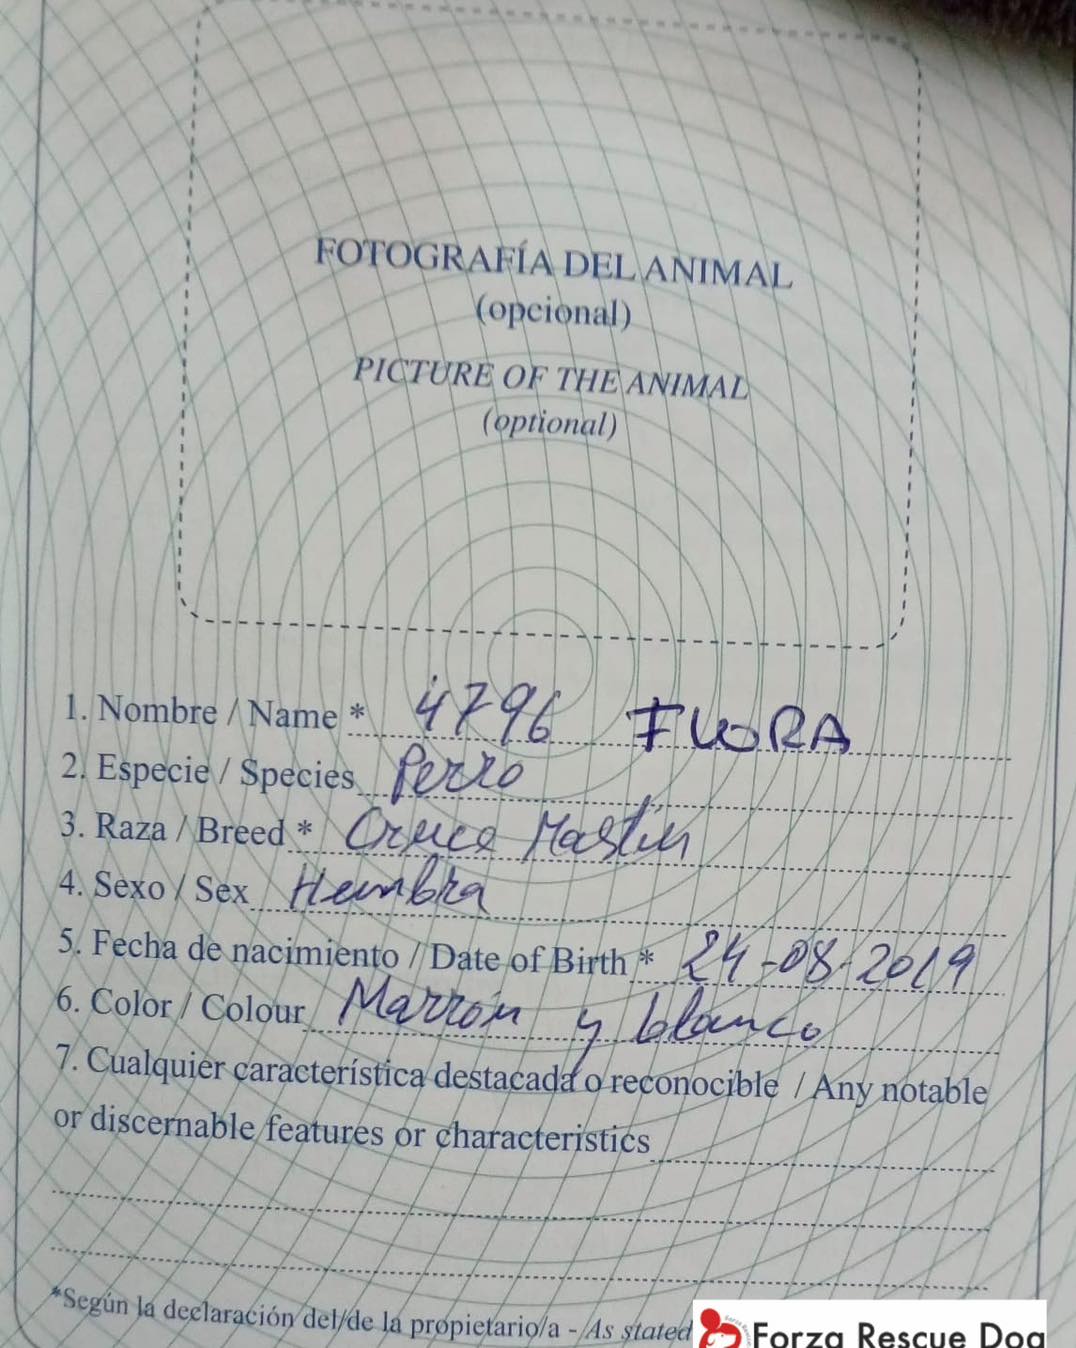 FOTOGRAFÍA DEL ANIMAL
(opcional)
PICTURE OF THE ANIMAL
(optional)
1. Nombre / Name * 4796 FLORA
2. Especie / Species Perro
3. Raza / Breed * Cruce Mastín
4. Sexo / Sex Hembra
5. Fecha de nacimiento / Date of Birth * 24-08-2019
6. Color / Colour Marrón y blanco
7. Cualquier característica destacada o reconocible / Any notable
or discernable features or characteristics
*Según la declaración del/de la propietario/a - As stated
Forza Rescue Dog